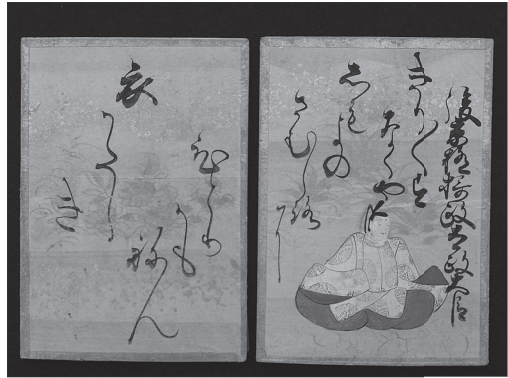 後京極摂政太政大臣
きり〱す
なくや
しもよの
さむしろに
衣
かたし
き
ひとり
かも
ねん